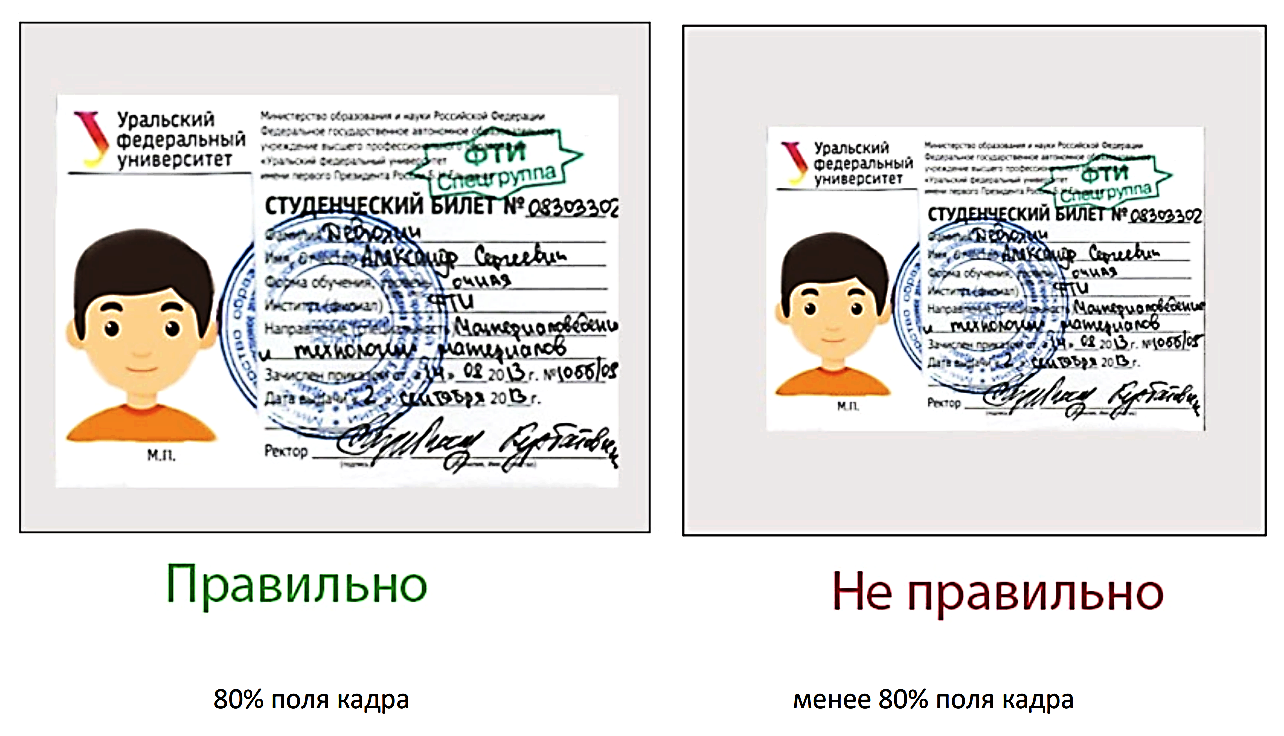 Уральский
федеральный
университет
Министерство образования и науки Российской Федерации
Федеральное государственное автономное образовательное
учреждение высшего профессионального
«Уральский федеральный университет
имени первого Президента России Б.Н.
ФТИ
Спецгруппа
СТУДЕНЧЕСКИЙ БИЛЕТ № 08303302
Фамилия
Имя, отчество Александр Сергеевич
Форма обучения, уровень очная
Институт (филиал) ФТИ
Направление (специальность) Материаловедение
и технологии материалов
Зачислен приказом от «14» 08 2013 г. №1066/08
Дата выдачи «2» сентября 2013 г.
М.П.
Ректор
Правильно
80% поля кадра
Уральский
федеральный
университет
Министерство образования и науки Российской Федерации
Федеральное государственное автономное образовательное
учреждение высшего профессионального
«Уральский федеральный университет
имени первого Президента России Б.Н.
ФТИ
Спецгруппа
СТУДЕНЧЕСКИЙ БИЛЕТ № 08303302
Фамилия
Имя, отчество Александр Сергеевич
Форма обучения, уровень очная
Институт (филиал) ФТИ
Направление (специальность) Материаловедение
и технологии материалов
Зачислен приказом от «14» 08 2013 г. №1066/08
Дата выдачи «2» сентября 2013 г.
М.П.
Ректор
Не правильно
менее 80% поля кадра